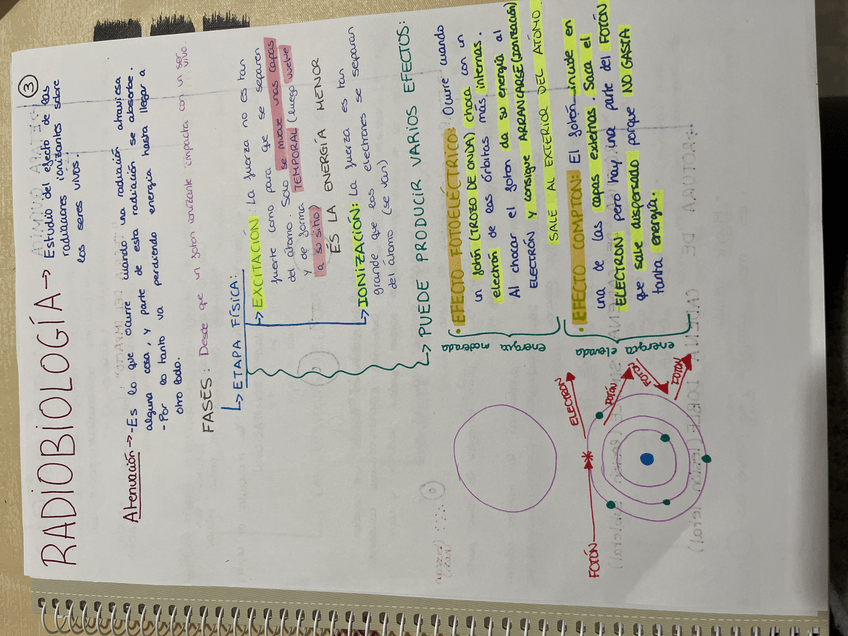 ③
RADIOBIOLOGÍA → Estudio del efecto de las
radiaciones ionizantes sobre
los seres vivos.
Atenuación → - Es lo que ocurre cuando una radiación atraviesa
alguna cosa, y parte de esta radiación se absorbe.
- Por lo tanto va perdiendo energía hasta llegar a
otro lado.
FASES: Desde que un foton ionizante impacta con un ser vivo
↳ ETAPA FÍSICA:
↳ EXCITACIÓN: La fuerza no es tan
fuerte como para que se separen
del átomo. Solo se mueve unas capas
y de forma TEMPORAL (luego vuelve
a su sitio)
ÉS LA ENERGÍA MENOR
↳ IONIZACIÓN: La fuerza es tan
grande que los electrones se separan
del átomo (se van)
↳ PUEDE PRODUCIR VARIOS EFECTOS:
• EFECTO FOTOELÉCTRICO: Ocurre cuando
un fotón (TROZO DE ONDA) choca con un
electrón de las órbitas más internas.
Al chocar el foton da su energía al
ELECTRÓN y consigue ARRANCARSE (IONIZACIÓN)
SALE AL EXTERIOR DEL ÁTOMO.
energía moderada
• EFECTO COMPTON: El fotón incide en
una de las capas externas. Saca el
ELECTRON pero hay una parte del FOTÓN
que sale dispersado porque NO GASTA
tanta energía.
energía elevada
FOTÓN
ELECTRON
FOTÓN
FOTÓN
FOTÓN